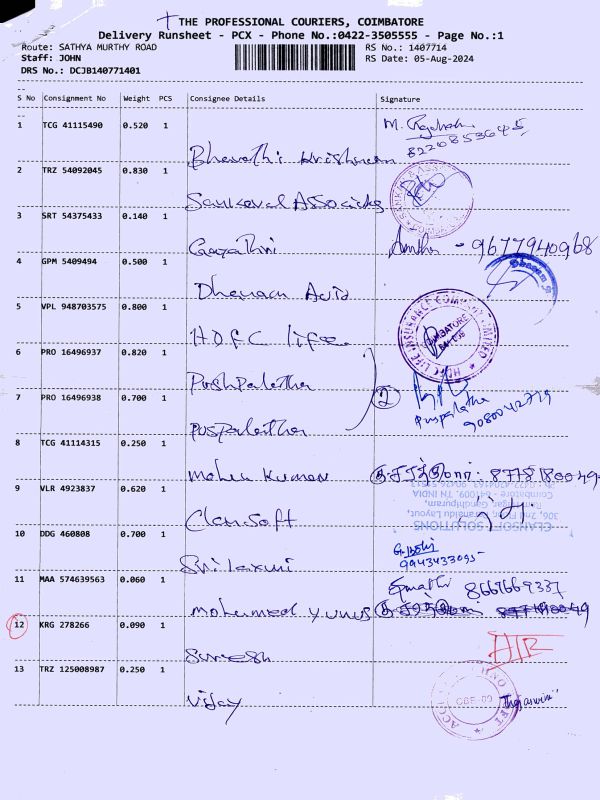 THE PROFESSIONAL COURIERS, COIMBATORE
Delivery Runsheet - PCX - Phone No.:0422-3505555 - Page No.:1
Route: SATHYA MURTHY ROAD RS No.: 1407714
Staff: JOHN RS Date: 05-Aug-2024
DRS No.: DCJB140771401
S No Consignment No Weight PCS Consignee Details Signature
1 TCG 41115490 0.520 1 Bharathi Krishnan M.
8220853645
2 TRZ 54092045 0.830 1 Sankaval Associates
3 SRT 54375433 0.140 1 Gayathri - 9677940968
4 GPM 5409494 0.500 1 Dhanam Avid
5 VPL 948703575 0.800 1 HDFC life HDFC LIFE INSURANCE COMPANY LIMITED COIMBATORE
6 PRO 16496937 0.820 1 Pushpalatha
7 PRO 16496938 0.700 1 Puspalatha 2 Puspalatha
9080042779
8 TCG 41114315 0.250 1 Mohan Kumar
9 VLR 4923837 0.620 1 Clansoft CLANSOFT SOLUTIONS
306, 2nd Floor, Layout,
Nagar, Gandhipuram,
Coimbatore - 641009. TN INDIA
10 DDG 460808 0.700 1 Sri laxmi
9943433095
11 MAA 574639563 0.060 1 Mohamed Yunus 8667669337
12 KRG 278266 0.090 1 Suresh
13 TRZ 125008987 0.250 1 Vijay CBE-09